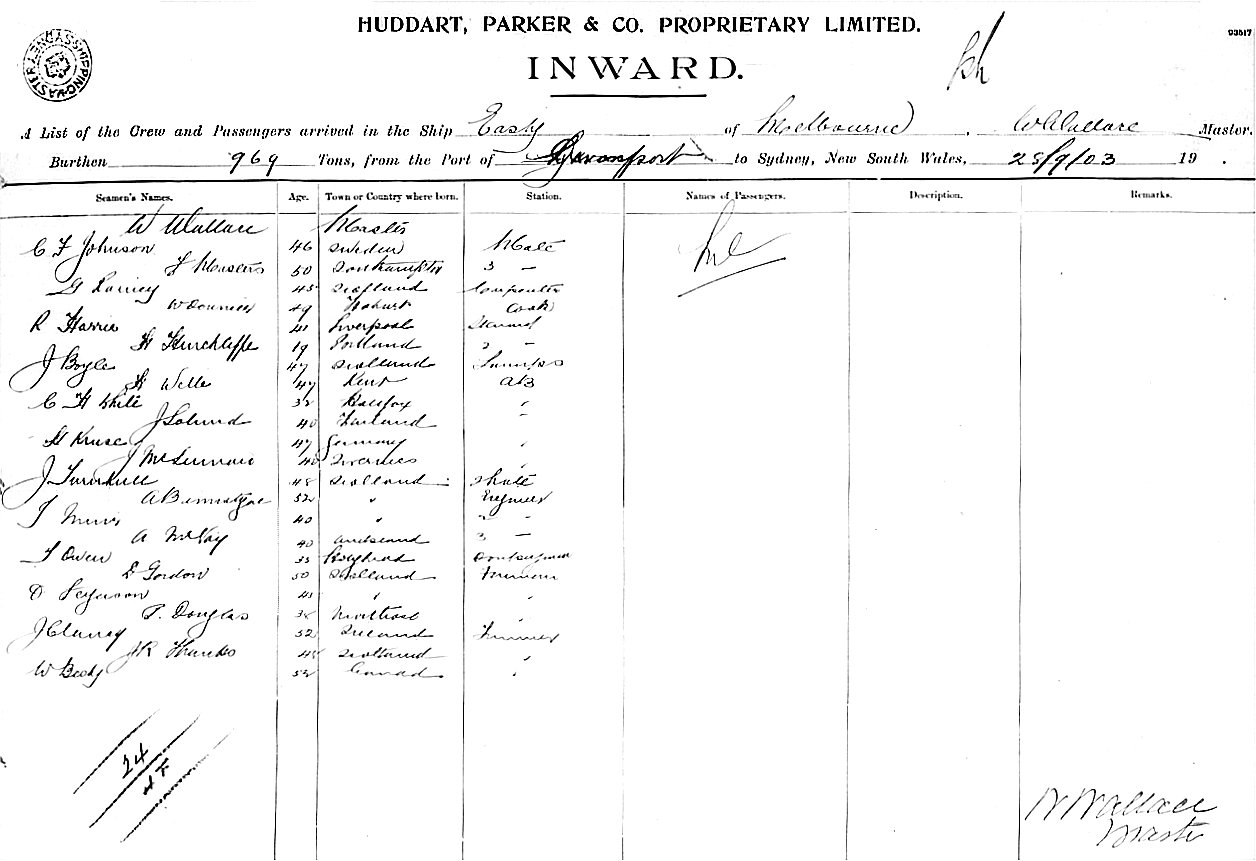 HUDDART, PARKER & CO. PROPRIETARY LIMITED.
93517
INWARD.
A List of the Crew and Passengers arrived in the Ship Easby of Melbourne, W Wallace Master.
Burthen 969 Tons, from the Port of Devonport to Sydney, New South Wales, 25/9/03 19 .
Seamen's Names. Age. Town or Country where born. Station. Names of Passengers. Description. Remarks.
W Wallace Master
C F Johnson 46 Sweden Mate
F Masters 50 Southampton 2 —
G Rainey 45 Scotland Carpenter
49 Hobart Cook
R Harris 41 Liverpool Steward
H Hinchliffe 19 Portland 2 —
J Boyle 47 Scotland Lamps
H Wells 47 Kent AB
C H White 38 Halifax "
40 Finland "
H Kruse 47 Germany "
J 40 "
J Turnbull 48 Scotland
A Bannatyne 52 " Engineer
40 " 2 —
A McKay 40 3 —
T Owen 35 Holyhead Donkeyman
D Gordon 50 Scotland Fireman
D Ferguson 41 " "
P. Douglas 38 Montrose "
J Clancy 52 Ireland Trimmer
J R 48 Scotland "
W 52 Canada "
Nil
24
W Wallace
Master